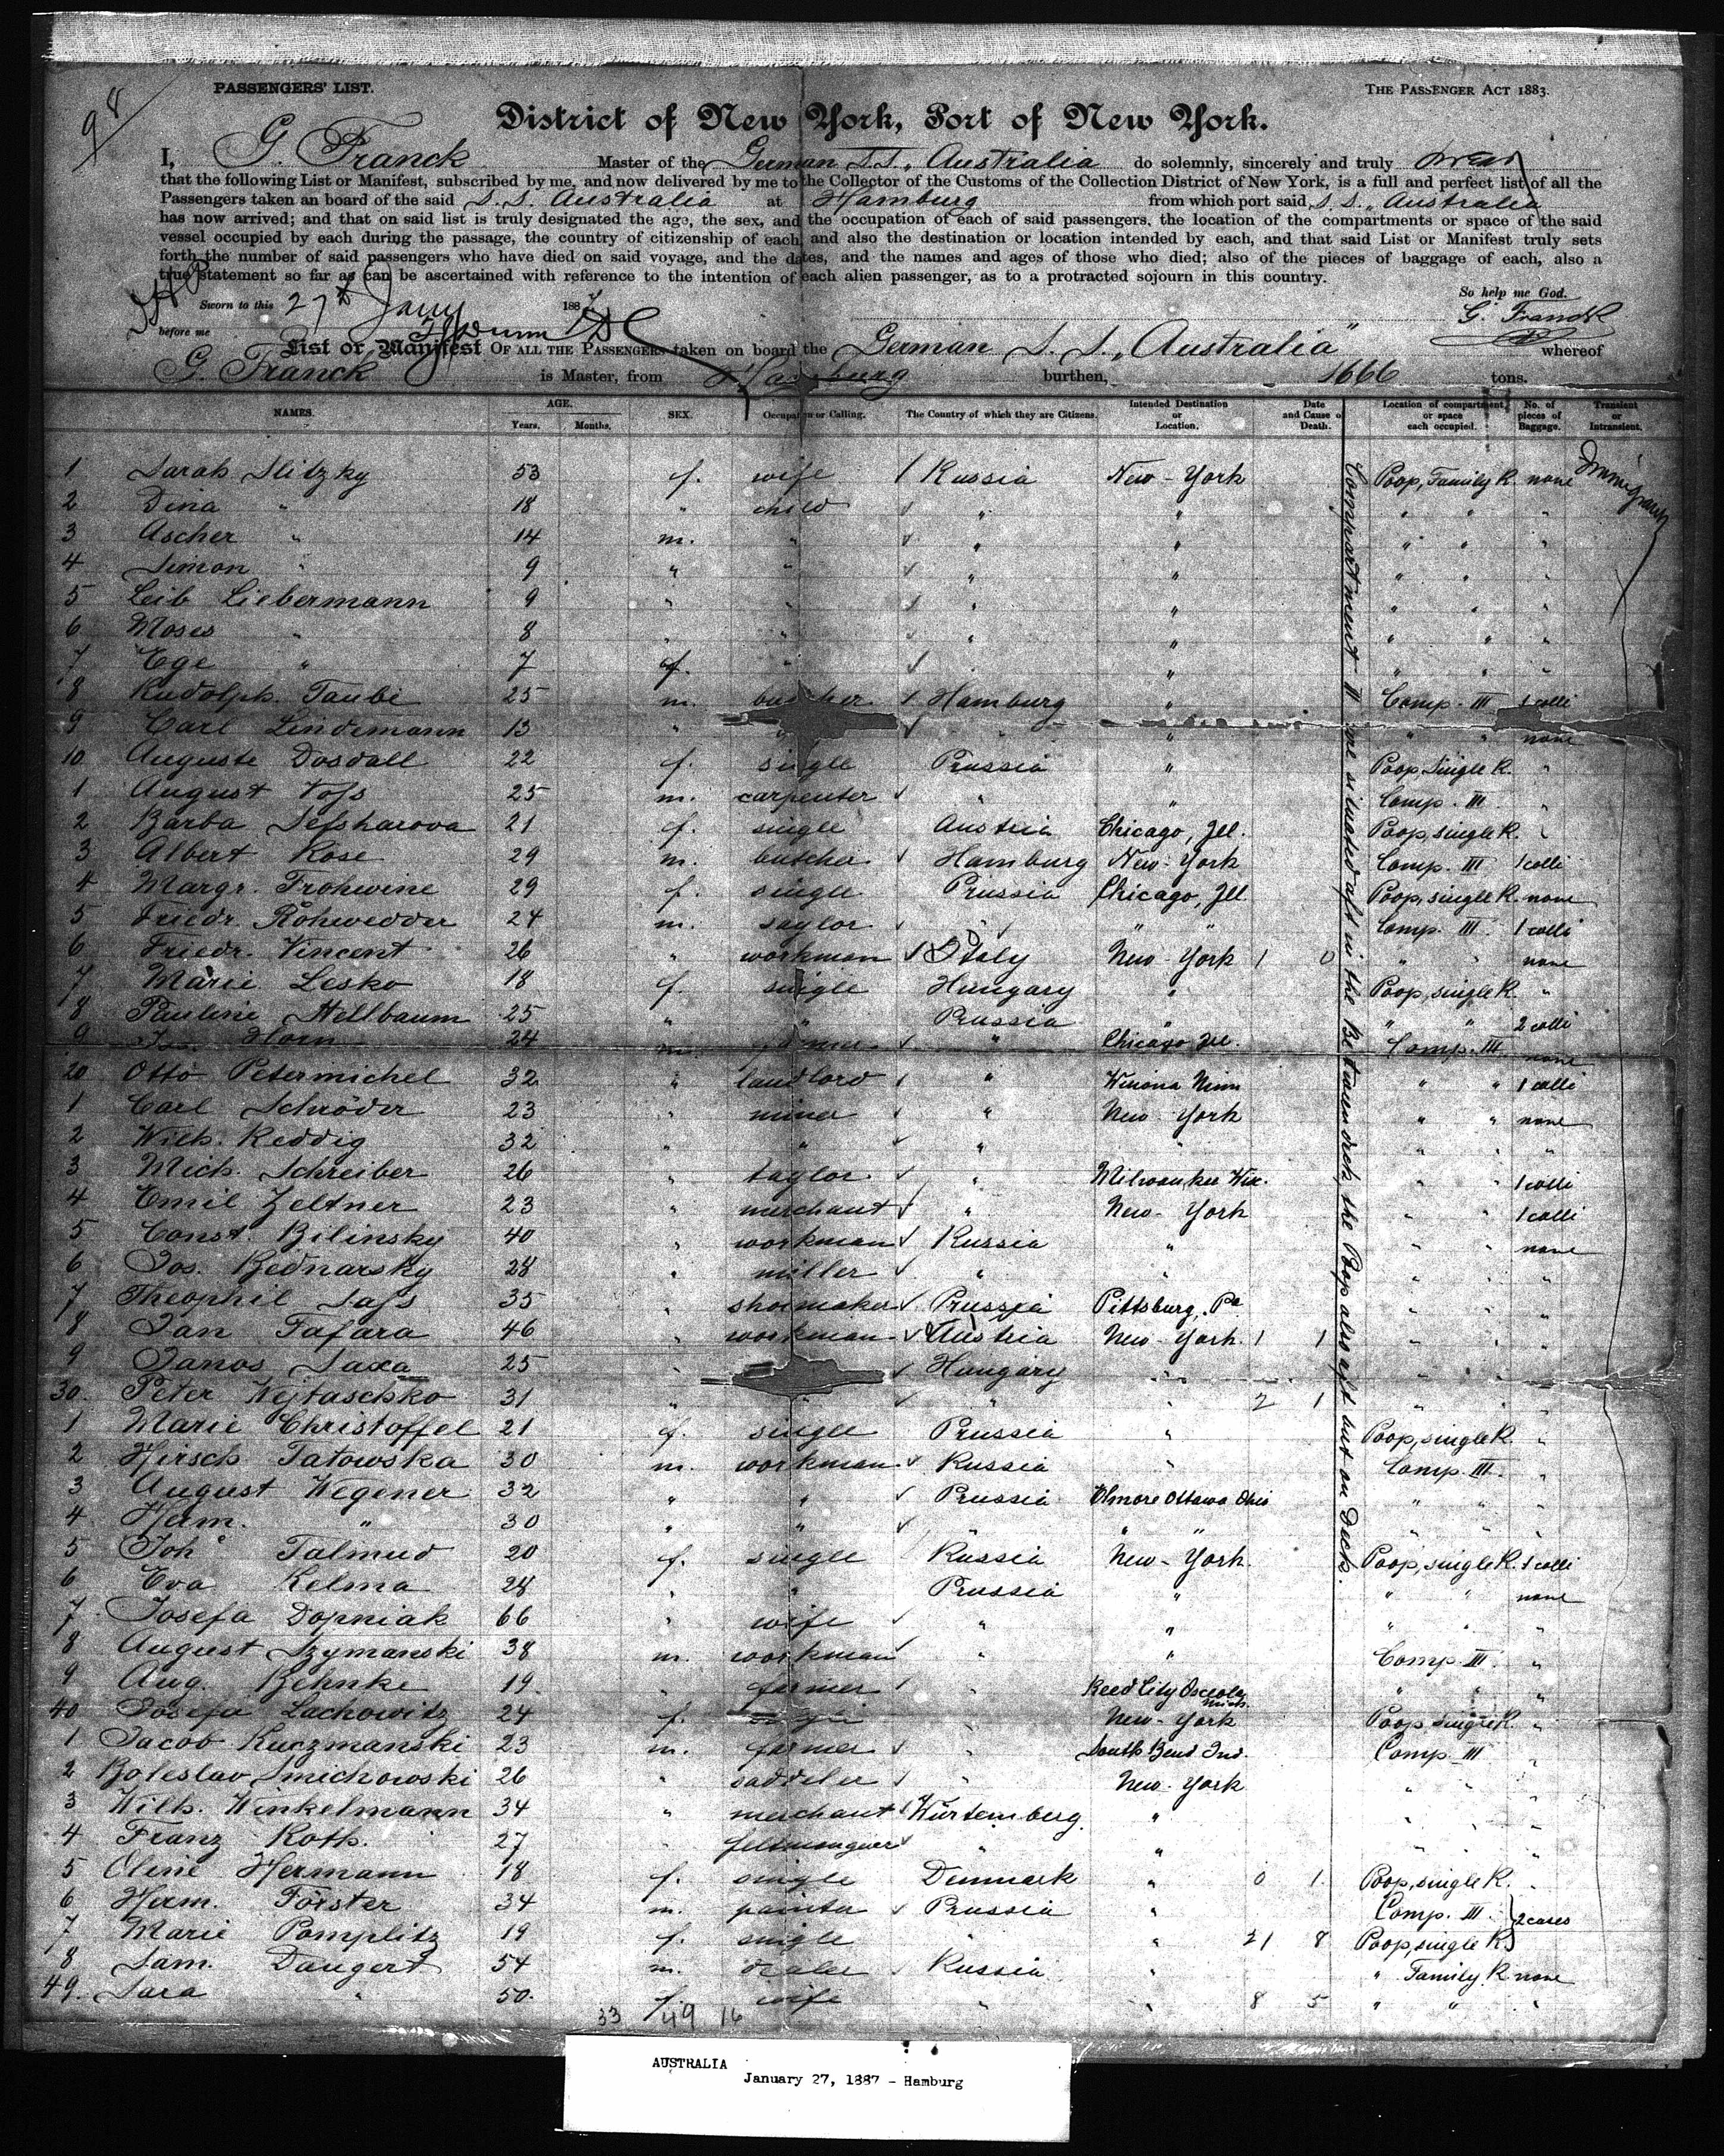 98
PASSENGERS' LIST.
THE PASSENGER ACT 1883.
District of New York, Port of New York.
I, G. Franck Master of the German S.S. „Australia do solemnly, sincerely and truly swear
that the following List or Manifest, subscribed by me, and now delivered by me to the Collector of the Customs of the Collection District of New York, is a full and perfect list of all the
Passengers taken an board of the said S.S. Australia at Hamburg from which port said S.S. „Australia
has now arrived; and that on said list is truly designated the age, the sex, and the occupation of each of said passengers, the location of the compartments or space of the said
vessel occupied by each during the passage, the country of citizenship of each, and also the destination or location intended by each, and that said List or Manifest truly sets
forth the number of said passengers who have died on said voyage, and the dates, and the names and ages of those who died; also of the pieces of baggage of each, also a
true statement so far as can be ascertained with reference to the intention of each alien passenger, as to a protracted sojourn in this country.
So help me God.
Sworn to this 27th Jany 1887
G. Franck
before me
List or Manifest OF ALL THE PASSENGERS taken on board the German S. S. „Australia" whereof
G. Franck is Master, from Hamburg burthen, 1666 tons.
NAMES. AGE. Years. Months. SEX. Occupation or Calling. The Country of which they are Citizens. Intended Destination or Location. Date and Cause of Death. Location of compartment, or space each occupied. No. of pieces of Baggage. Transient or Intransient.
Compartment II are situated aft in the Betweendeck, the Poop also aft but on Deck.
1 Sarah Slitzky 53 f. wife Russia New-York Poop, Family R. none
2 Dina " 18 " child " " " " "
3 Ascher " 14 m. " " " " " "
4 Simon " 9 " " " " " " "
5 Leib Liebermann 9 " " " " " " "
6 Moses " 8 " " " " " " "
7 Ege " 7 f. " " " " "
8 Rudolph Taube 25 m. butcher Hamburg " Comp. III 1 colli
9 Carl Lindemann 13 " " " " " none
10 Auguste Dosdall 22 f. single Prussia " Poop, Single R. "
1 August Voss 25 m. carpenter " " Comp. III "
2 Barba 21 f. single Austria Chicago, Ill. Poop, single R. "
3 Albert Rose 29 m. butcher Hamburg New-York Comp. III 1 colli
4 Margr. Frohwine 29 f. single Prussia Chicago, Ill. Poop, single R. none
5 Friedr. Rohwedder 24 m. saylor " " " Comp. III 1 colli
6 Friedr. Vincent 26 " workman Italy New-York 1 0 " " none
7 Marie Lesko 18 f. single Hungary " Poop, single R. "
8 Pauline Hellbaum 25 " " Prussia " " " 2 colli
9 Horn 24 m. " Chicago Ill. Comp. III none
20 Otto Petermichel 32 " landlord " Winona Minn " " 1 colli
1 Carl Schröder 23 " miner " New-York " " none
2 Wilh. Reddig 32 " " " " " " "
3 Mich. Schreiber 26 " taylor " Milwaukee Wis. " " 1 colli
4 Emil Zeltner 23 " merchant " New-York " " 1 colli
5 Const. Bilinsky 40 " workman Russia " " " none
6 Jos. Bednarsky 28 " miller " " " " "
7 Theophil Sass 35 " shoemaker Prussia Pittsburg, Pa " " "
8 Jan Fafara 46 " workman Austria New-York 1 1 " " "
9 Janos Saxa 25 " Hungary " " " "
30. Peter Wejtaschko 31 " " " " 2 1 " " "
1 Marie Christoffel 21 f. single Prussia " Poop, single R. "
2 Hirsch Tatowska 30 m. workman Russia " Comp. III "
3 August Wegener 32 " " Prussia Elmore Ottawa Ohio " " "
4 Herm. " 30 " " " " " " " "
5 Joh. Talmud 20 f. single Russia New-York Poop, single R. 1 colli
6 Eva Kelma 28 " " Prussia " " " none
7 Josefa Dopniak 66 " wife " " " " "
8 August Szymanski 38 m. workman " " Comp. III "
9 Aug. Behnke 19. " farmer " Reed City Osceola Mich. " " "
40 Josefa Lachowitz 24 f. single " New-York Poop single R. "
1 Jacob Kuczmanski 23 m. farmer " South Bend Ind. Comp. III "
2 Boleslav Smichowski 26 " saddeler " New-York " " "
3 Wilh. Winkelmann 34 " merchant Würtemberg " " " "
4 Franz Roth. 27 " feltmonguer " " " " "
5 Oline Hermann 18 f. single Denmark " 0 1 Poop, single R. "
6 Herm. Förster 34 m. painter Prussia " Comp. III } 2 cases
7 Marie Pomplitz 19 f. single " " 21 8 Poop, single R.
8 Sam. Daugert 54 m. dealer Russia " " Family R none
49. Sara " 50. f. wife " " 8 5 " " "
33 49 16
AUSTRALIA
January 27, 1887 - Hamburg